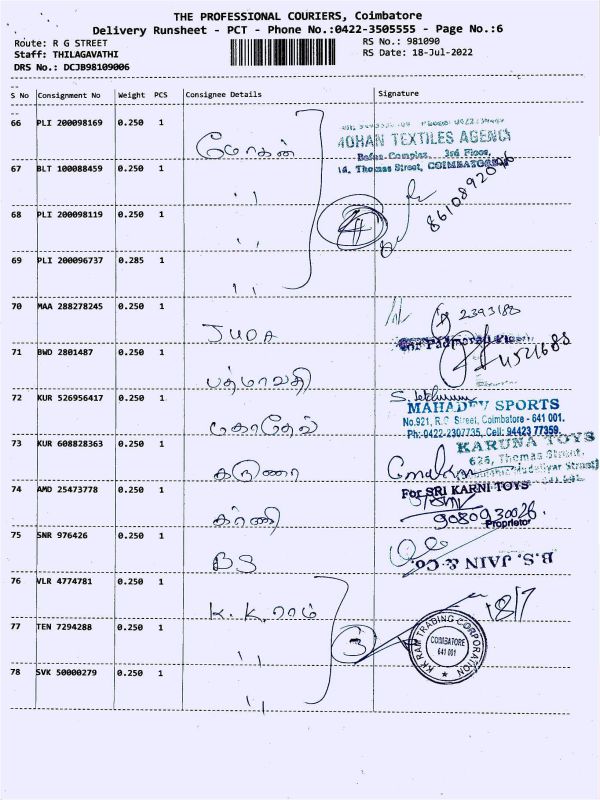 THE PROFESSIONAL COURIERS, Coimbatore
Delivery Runsheet - PCT - Phone No.:0422-3505555 - Page No.:6
Route: R G STREET RS No.: 981090
Staff: THILAGAVATHI RS Date: 18-Jul-2022
DRS No.: DCJB98109006
S No Consignment No Weight PCS Consignee Details Signature
66 PLI 200098169 0.250 1 மோகன்
MOHAN TEXTILES AGENCY
Complex, 3rd Floor,
16, Thomas Street, COIMBATORE
67 BLT 100088459 0.250 1 ,,
68 PLI 200098119 0.250 1 ,,
4
69 PLI 200096737 0.285 1 ,,
70 MAA 288278245 0.250 1 JUDA
2393188
71 BWD 2801487 0.250 1 பத்மாவதி
For Padmavati
72 KUR 526956417 0.250 1 மகாதேவ்
MAHADEV SPORTS
No.921, R.G. Street, Coimbatore - 641 001.
Ph: 0422-2307735, Cell: 94423 77359
73 KUR 608828363 0.250 1 கருணா
KARUNA TOYS
626, Thomas Street,
74 AMD 25473778 0.250 1 கர்ணி
For SRI KARNI TOYS
9080930026.
Proprietor
75 SNR 976426 0.250 1 BS
B.S. JAIN & CO.
76 VLR 4774781 0.250 1 K.K.ராம்
18/7
77 TEN 7294288 0.250 1 ,,
3
KK RAM TRADING CORPORATION
COIMBATORE
641 001
78 SVK 50000279 0.250 1 ,,